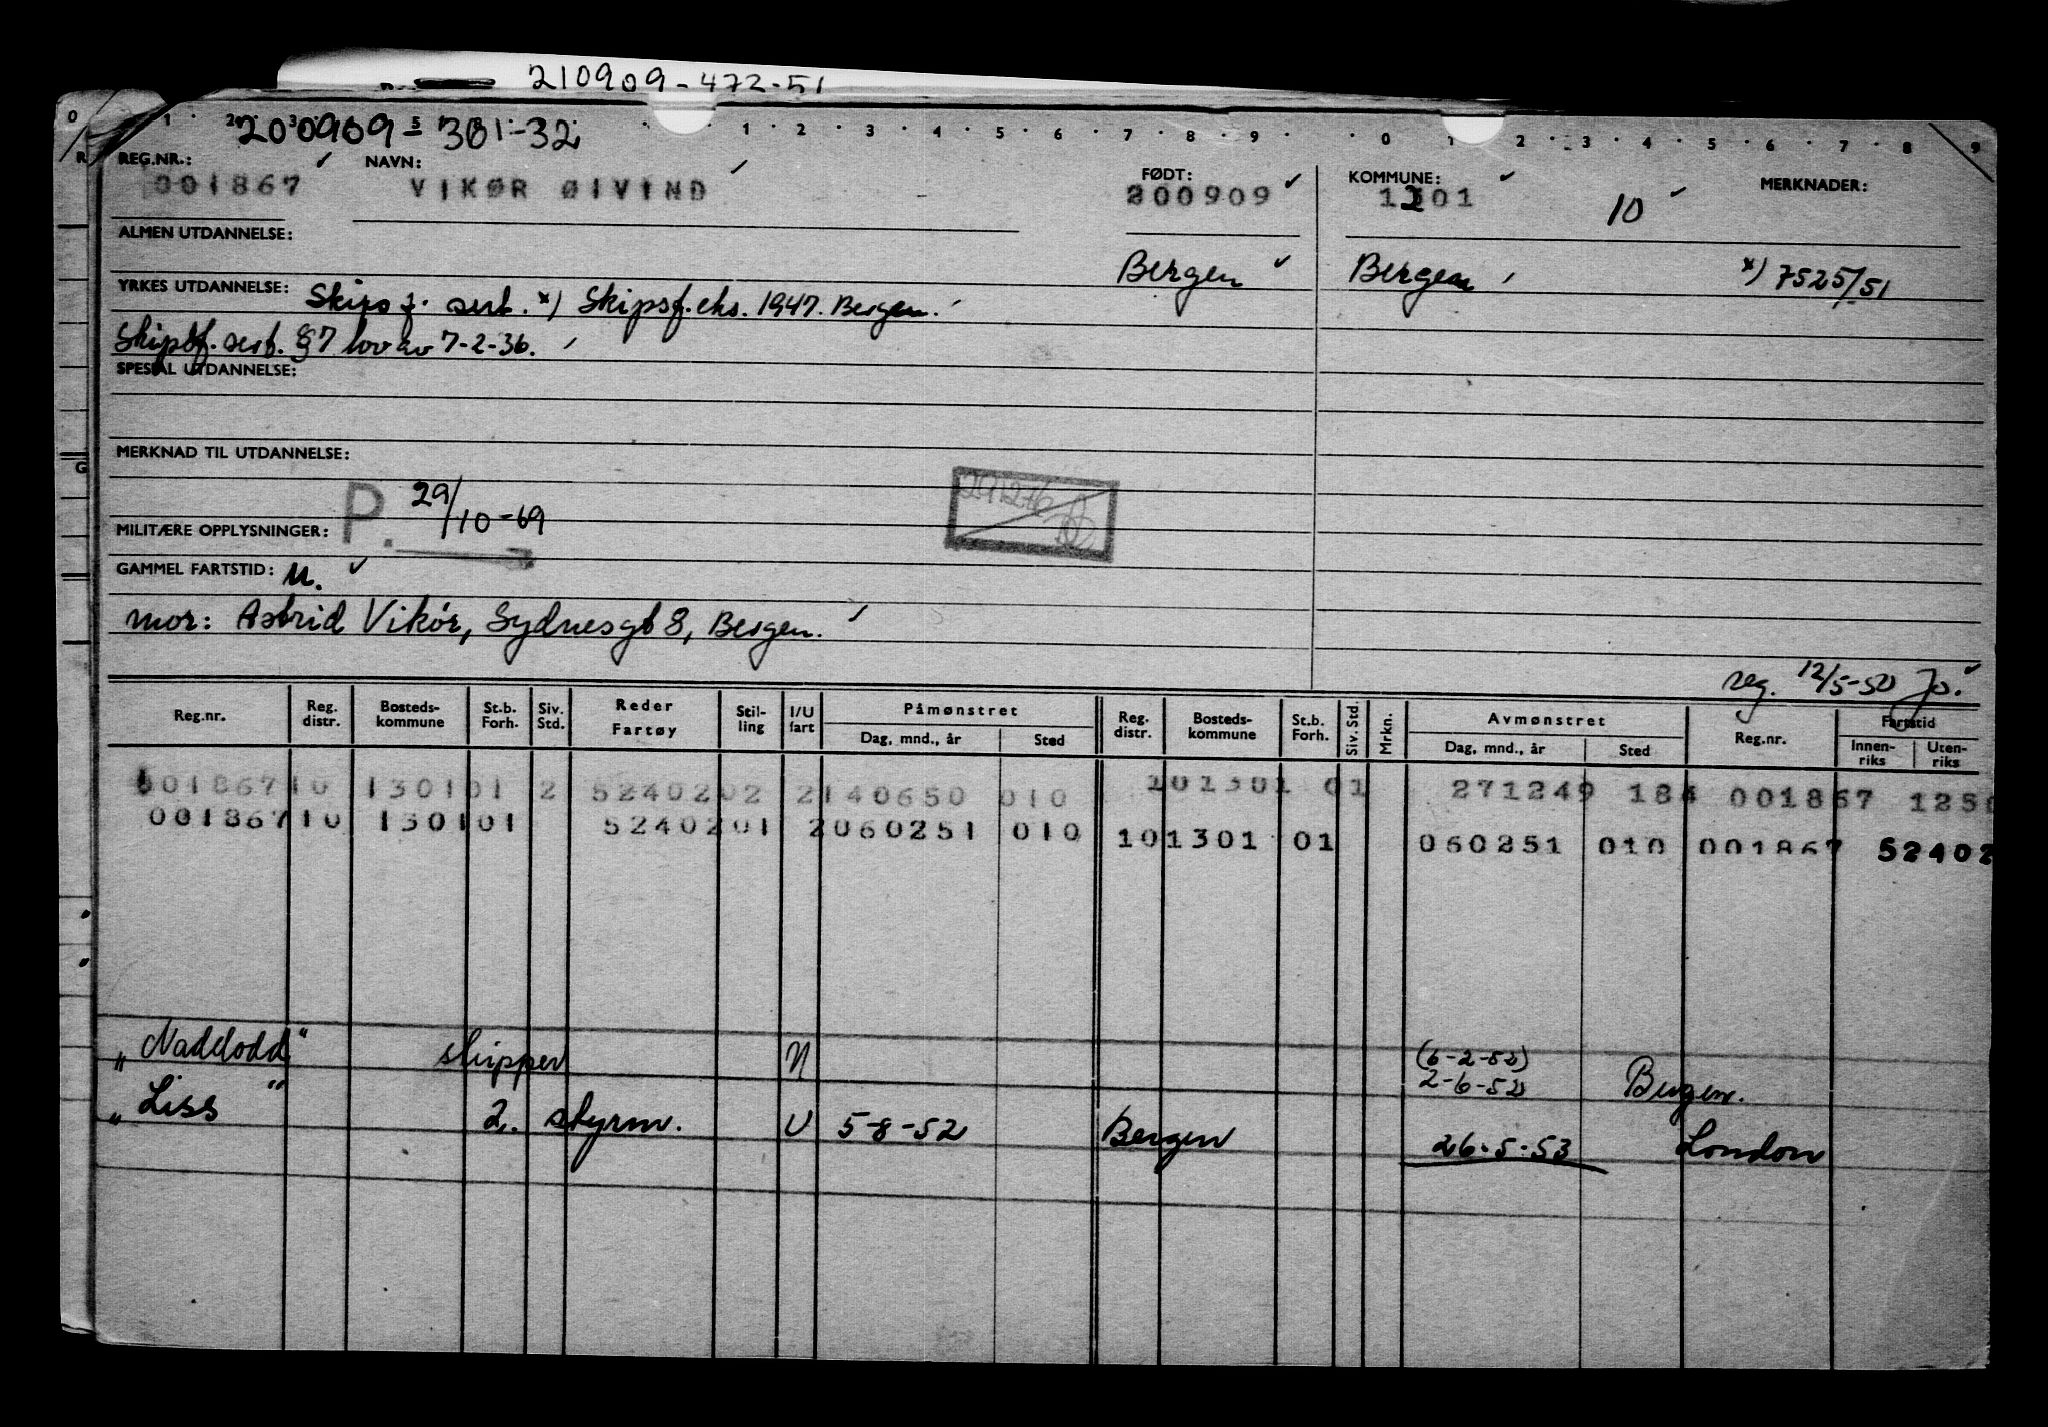 210909-472-51
200909-301-32
REG.NR.: NAVN: FØDT: KOMMUNE: MERKNADER:
001867 VIKØR ØIVIND 200909 1301 10
ALMEN UTDANNELSE: Bergen Bergen x) 7525/51
YRKES UTDANNELSE: Skipsf. sert. x) Skipsf.eks. 1947. Bergen.
Skipsf. sert. §7 lov av 7-2-36.
SPESIAL UTDANNELSE:
MERKNAD TIL UTDANNELSE:
P. 29/10-69
MILITÆRE OPPLYSNINGER:
GAMMEL FARTSTID: U.
mor: Astrid Vikør, Sydnesgt 8, Bergen.
reg. 12/5-50 Jo.
Reg.nr. Reg. distr. Bosteds-kommune St.b. Forh. Siv. Std. Reder Fartøy Stil-ling I/U fart Påmønstret Dag, mnd., år Sted Reg. distr. Bosteds-kommune St.b. Forh. Siv. Std. Mrkn. Avmønstret Dag, mnd., år Sted Reg.nr. Fartstid Innen-riks Uten-riks
001867 10 1301 01 2 5240202 2 140650 010 10 1301 01 271249 184 001867 1250
001867 10 1301 01 5240201 2 060251 010 10 1301 01 060251 010 001867 52402
"Naddodd" skipper N (6-2-52) 2-6-52 Bergen.
"Liss" 2. styrm. U 5-8-52 Bergen 26.5.53 London